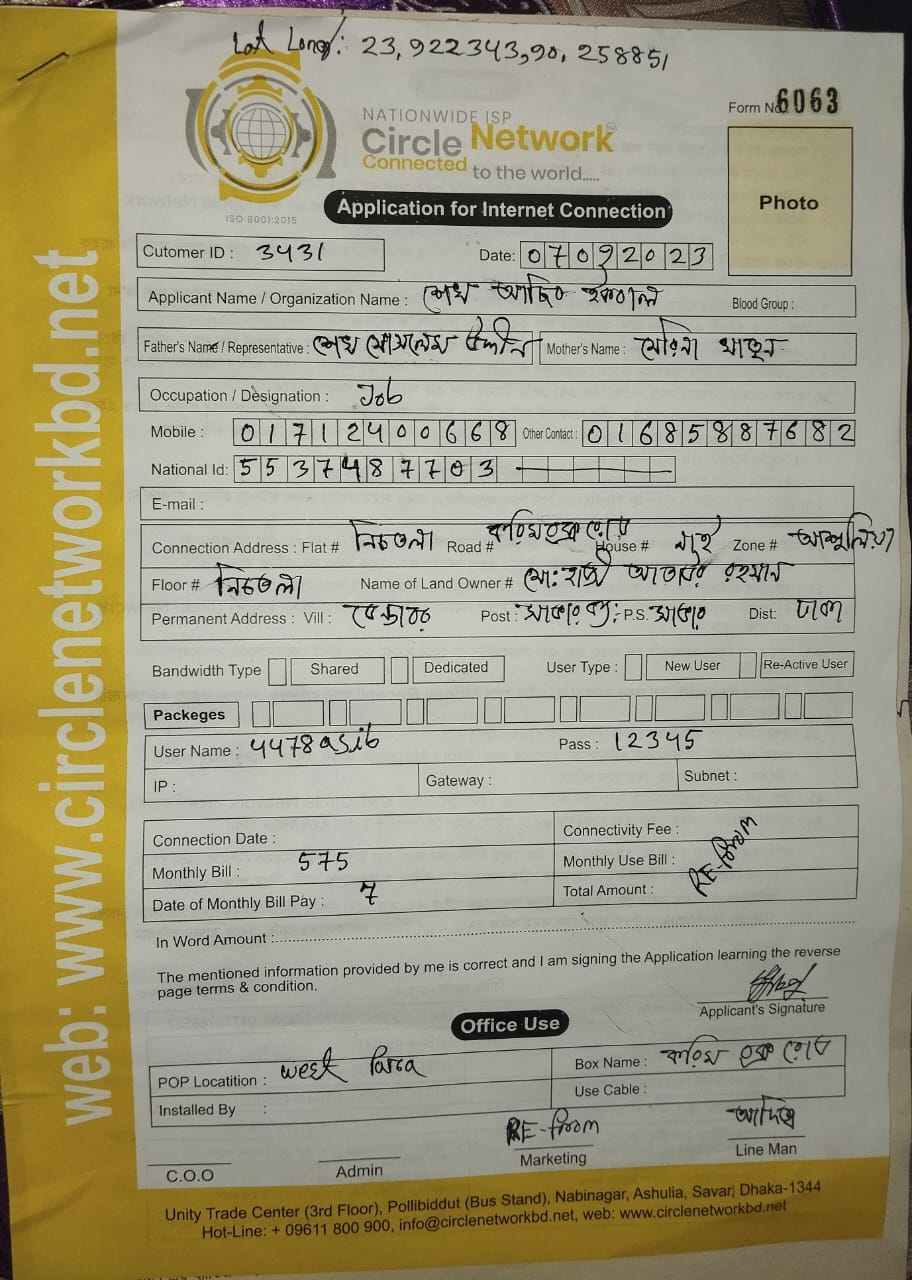 Lat Long: 23,922343,90,258851
Form No 6063
NATIONWIDE ISP
Circle Network
Connected to the world.....
ISO 9001:2015
Photo
Application for Internet Connection
Cutomer ID : 3431 Date: 07092023
Applicant Name / Organization Name : শেখ আছিব ইকবাল Blood Group :
Father's Name / Representative : শেখ মোসলেম উদ্দীন Mother's Name : খাতুন
Occupation / Designation : Job
Mobile : 01712400668 Other Contact : 01685887682
National Id: 5537487703
E-mail :
Connection Address : Flat # নিচতলা Road # House # নাই Zone # আশুলিয়া
Floor # নিচতলা Name of Land Owner # মো: হাজী রহমান
Permanent Address : Vill : Post : P.S. Dist: ঢাকা
Bandwidth Type Shared Dedicated User Type : New User Re-Active User
Packeges
User Name : 4478asib Pass : 12345
IP : Gateway : Subnet :
Connection Date : Connectivity Fee :
Monthly Bill : 575 Monthly Use Bill :
RE-from
Date of Monthly Bill Pay : 7 Total Amount :
In Word Amount :
The mentioned information provided by me is correct and I am signing the Application learning the reverse
page terms & condition.
Applicant's Signature
Office Use
POP Locatition : west Parca Box Name :
Installed By : Use Cable :
RE-from
C.O.O Admin Marketing Line Man
Unity Trade Center (3rd Floor), Pollibiddut (Bus Stand), Nabinagar, Ashulia, Savar, Dhaka-1344
Hot-Line: + 09611 800 900, info@circlenetworkbd.net, web: www.circlenetworkbd.net
web: www.circlenetworkbd.net